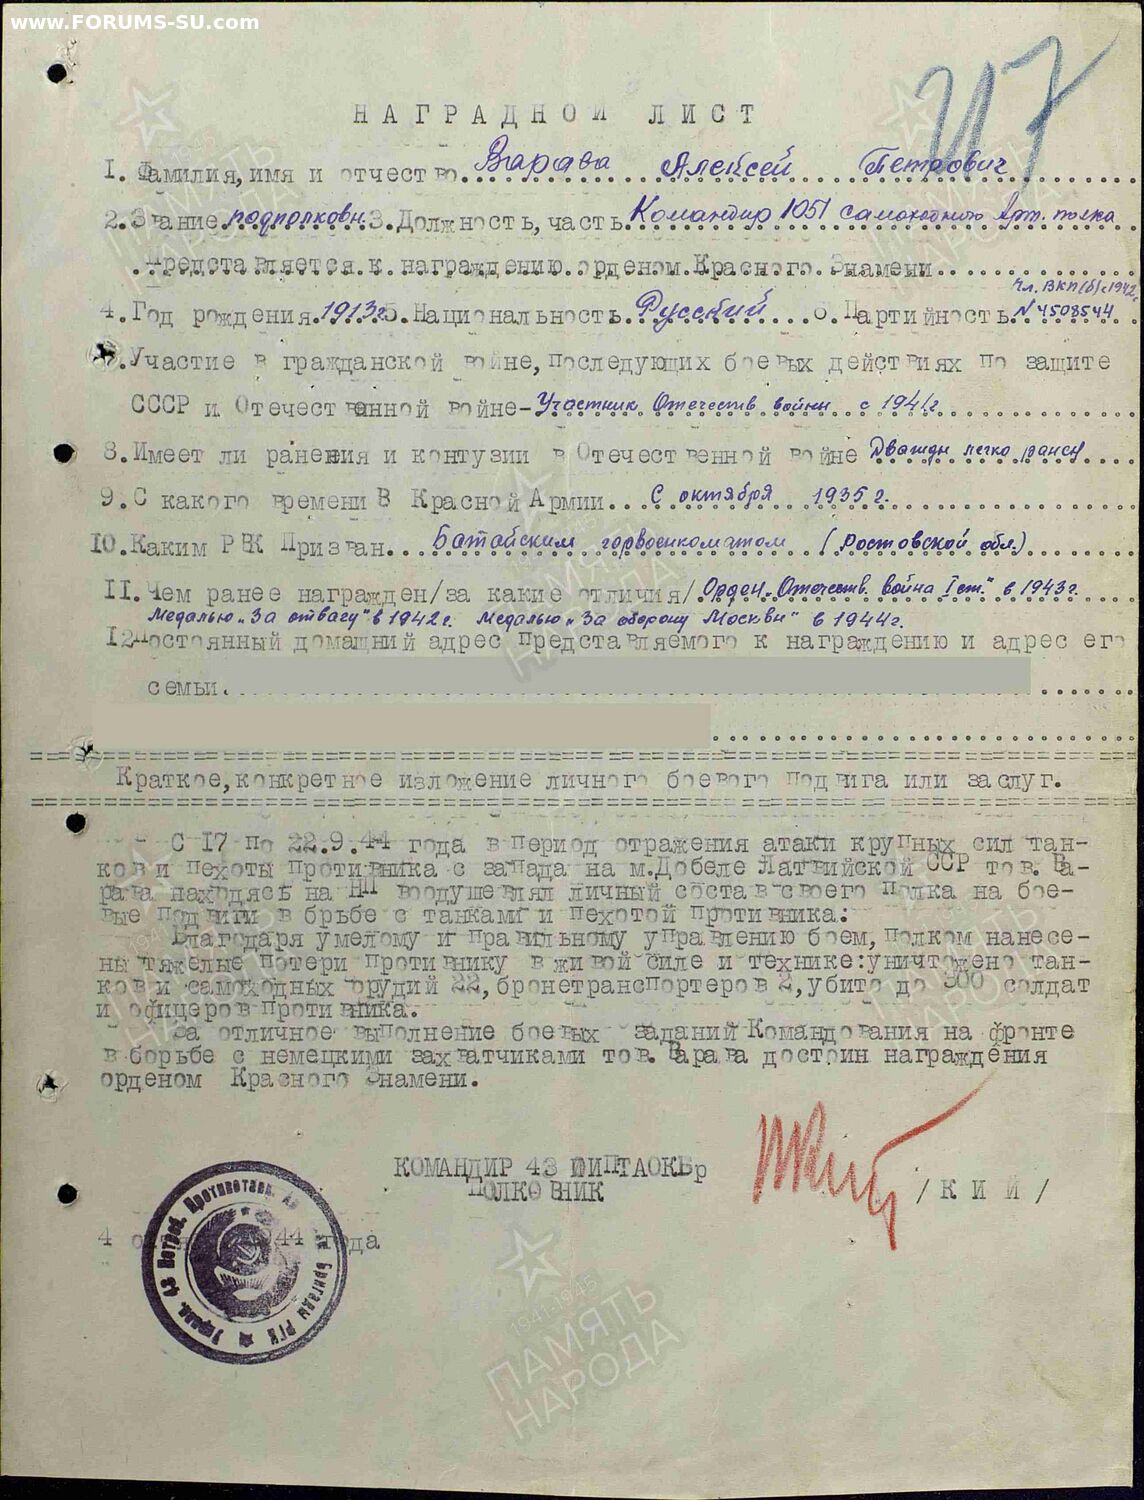 www.FORUMS-SU.com
417
НАГРАДНОЙ ЛИСТ
1. Фамилия, имя и отчество Варава Алексей Петрович
2. Звание подполковн. 3. Должность, часть Командир 1051 самоходного Арт. полка
Представляется к награждению орденом Красного Знамени
Чл. ВКП(б) с 1942,
4. Год рождения 1913г. 5. Национальность Русский 6. Партийность № 4508544
7. Участие в гражданской войне, последующих боевых действиях по защите
СССР и Отечественной войне - Участник Отечеств. войны с 1941г
8. Имеет ли ранения и контузии в Отечественной войне Дважды легко ранен
9. С какого времени В Красной Армии... С октября 1935 г.
10. Каким РВК Призван... Батайским горвоенкоматом (Ростовской обл.)
11. Чем ранее награжден/за какие отличия/ Орден „Отечеств. война I ст." в 1943г.
Медалью „За отвагу" в 1942г. Медалью „За оборону Москвы" в 1944г.
12. Постоянный домашний адрес представляемого к награждению и адрес его
семьи.
Краткое, конкретное изложение личного боевого подвига или заслуг.
С 17 по 22.9.44 года в период отражения атаки крупных сил тан-
ков и пехоты противника с запада на м. Добеле Латвийской ССР тов. Ва-
рава находясь на НП воодушевлял личный состав своего полка на бое-
вые подвиги в брьбе с танками и пехотой противника:
Благодаря умелому и правильному управлению боем, полком нанесе-
ны тяжелые потери противнику в живой силе и технике: уничтожено тан-
ков и самоходных орудий 22, бронетранспортеров 2, убито до 300 солдат
и офицеров противника.
За отличное выполнение боевых заданий Командования на фронте
в борьбе с немецкими захватчиками тов. Варава достоин награждения
орденом Красного Знамени.
КОМАНДИР 43 ОИПТАОКБр
ПОЛКОВНИК /КИЙ/
4 1944 года
43 Истреб. Противотанк. Бригады РГК
1941-1945
ПАМЯТЬ
НАРОДА